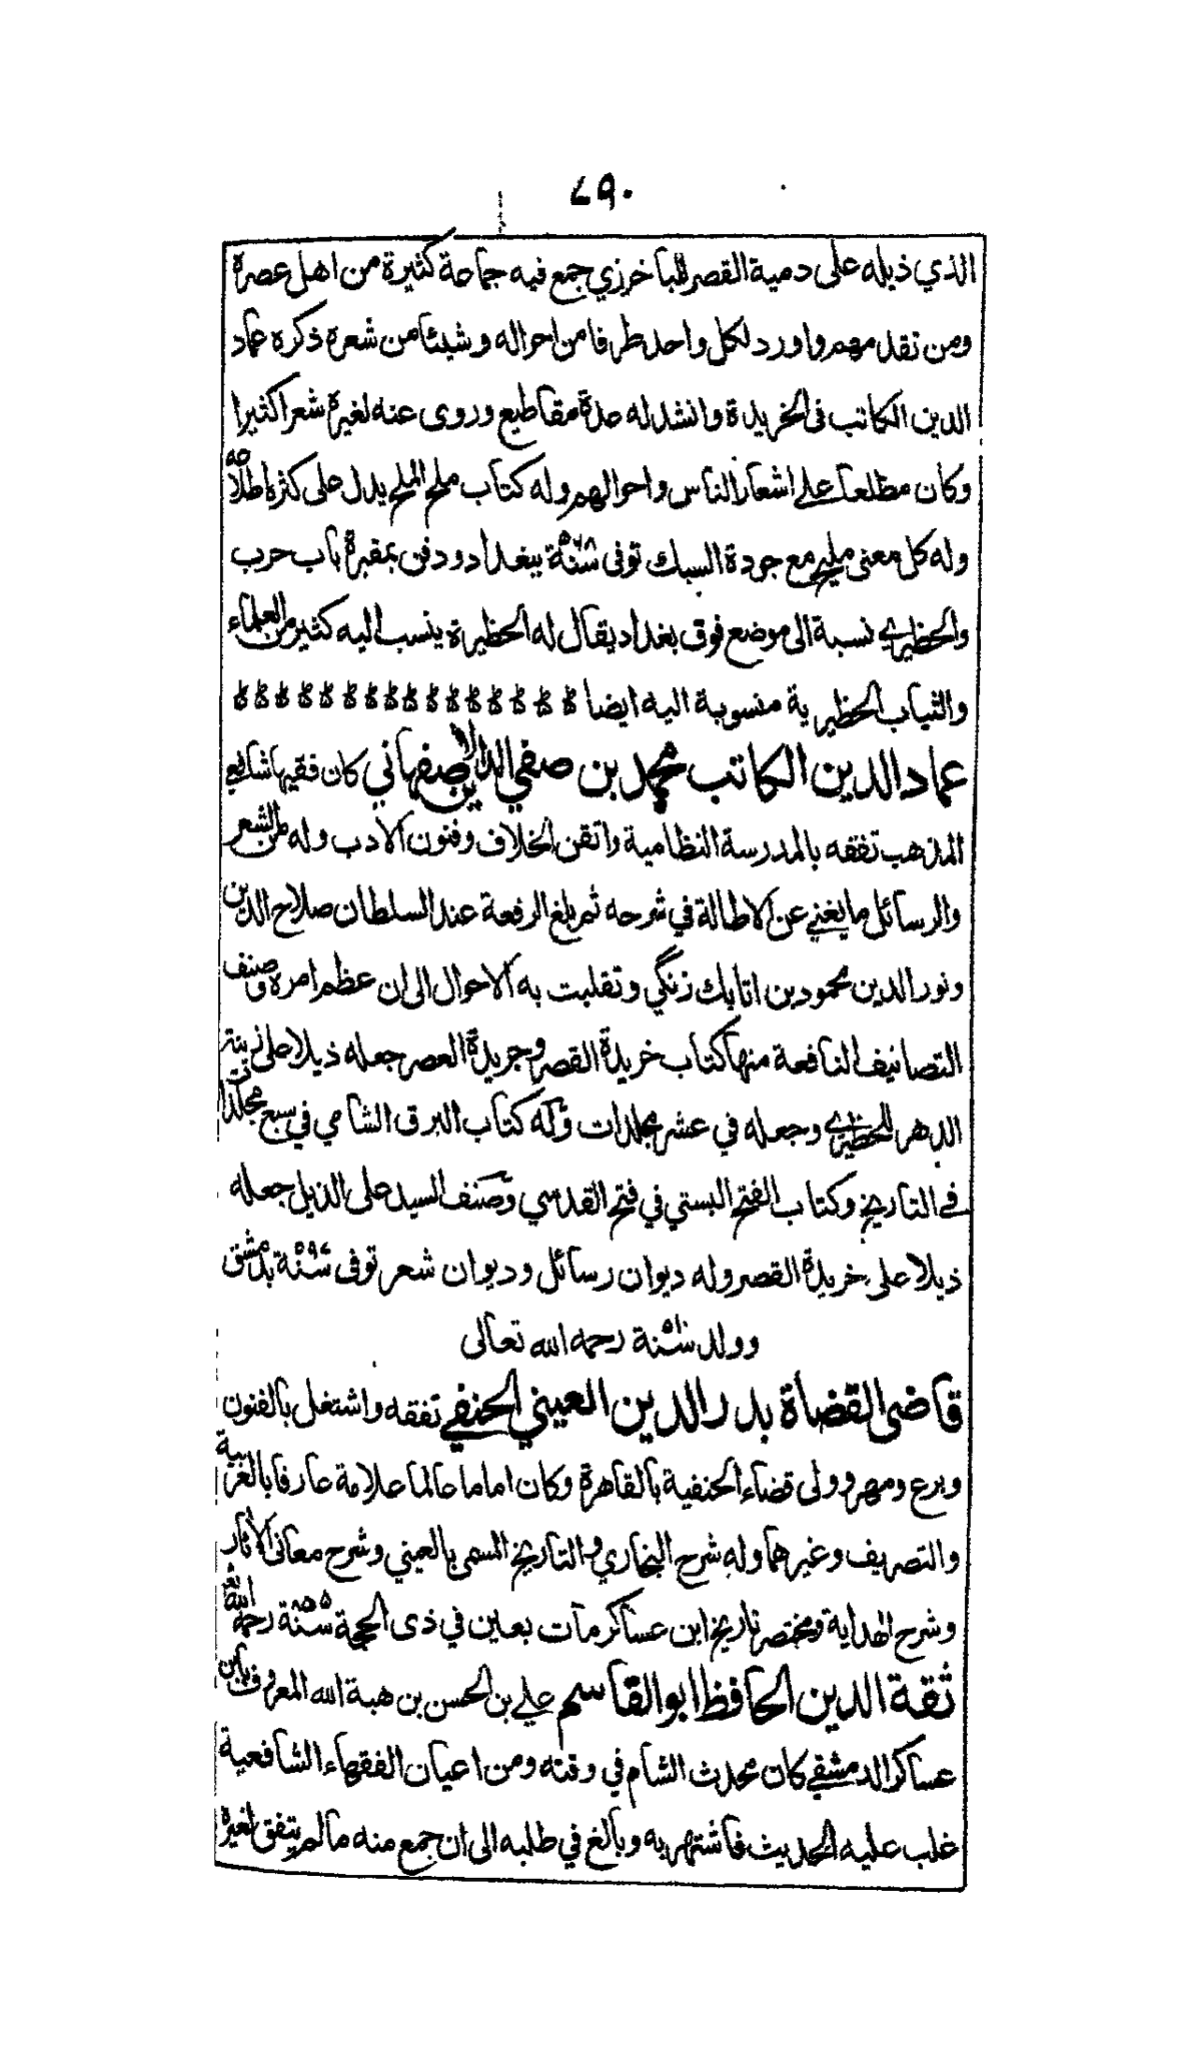 ٧٩٠
الذي ذيله على دمية القصر للباخرزي جمع فيه جماعة كثيرة من اهل عصره
ومن تقدمهم واورد لكل واحد طرفا من احواله وشيئا من شعره ذكره عماد
الدين الكاتب فى الخريدة وانشد له عدة مقاطيع وروى عنه لغيرة شعرا كثيرا
وكان مطلعا على اشعار الناس واحوالهم وله كتاب ملح الملح يدل على كثرة اطلاعه
وله كل معنى مليح مع جودة السبك توفى سنة ٥٦٨ ببغداد ودفن بمقبرة باب حرب
والحظيري نسبة الى موضع فوق بغداد يقال له الحظيرة ينسب اليه كثير من العلماء
والثياب الحظيرية منسوبة اليه ايضا
عماد الدين الكاتب محمد بن صفي الدين الاصفهاني كان فقيها شافعي
المذهب تفقه بالمدرسة النظامية واتقن الخلاف وفنون الادب وله من الشعر
والرسائل ما يغني عن الاطالة في شرحه ثم بلغ الرفعة عند السلطان صلاح الدين
ونور الدين محمود بن اتابك زنگي وتقلبت به الاحوال الى ان عظم امره وصنف
التصانيف النافعة منها كتاب خريدة القصر وجريدة العصر جعله ذيلا على زينة
الدهر للحظيري وجعله في عشر مجلدات وله كتاب البرق الشامي في سبع مجلدات
في التاريخ وكتاب الفتح البستي في فتح القدسي وصنف السيد على الذيل جعله
ذيلا على خريدة القصر وله ديوان رسائل وديوان شعر توفى سنة ٥٩٧ بدمشق
وولد سنة رحمه الله تعالى
قاضى القضاة بدر الدين العيني الحنفي تفقه واشتغل بالفنون
وبرع ومهر وولى قضاء الحنفية بالقاهرة وكان اماما عالما علامة عارفا بالعربية
والتصريف وغيرهما وله شرح البخاري والتاريخ المسمى بالعيني وشرح معانى الاثار
وشرح الهداية ومختصر تاريخ ابن عساكر مات بعين في ذى الحجة سنة ٨٥٥ رحمه الله
ثقة الدين الحافظ ابو القاسم علي بن الحسن بن هبة الله المعروف بابن
عساكر الدمشقي كان محدث الشام في وقته ومن اعيان الفقهاء الشافعية
غلب عليه الحديث فاشتهر به وبالغ في طلبه الى ان جمع منه ما لم يتفق لغيره